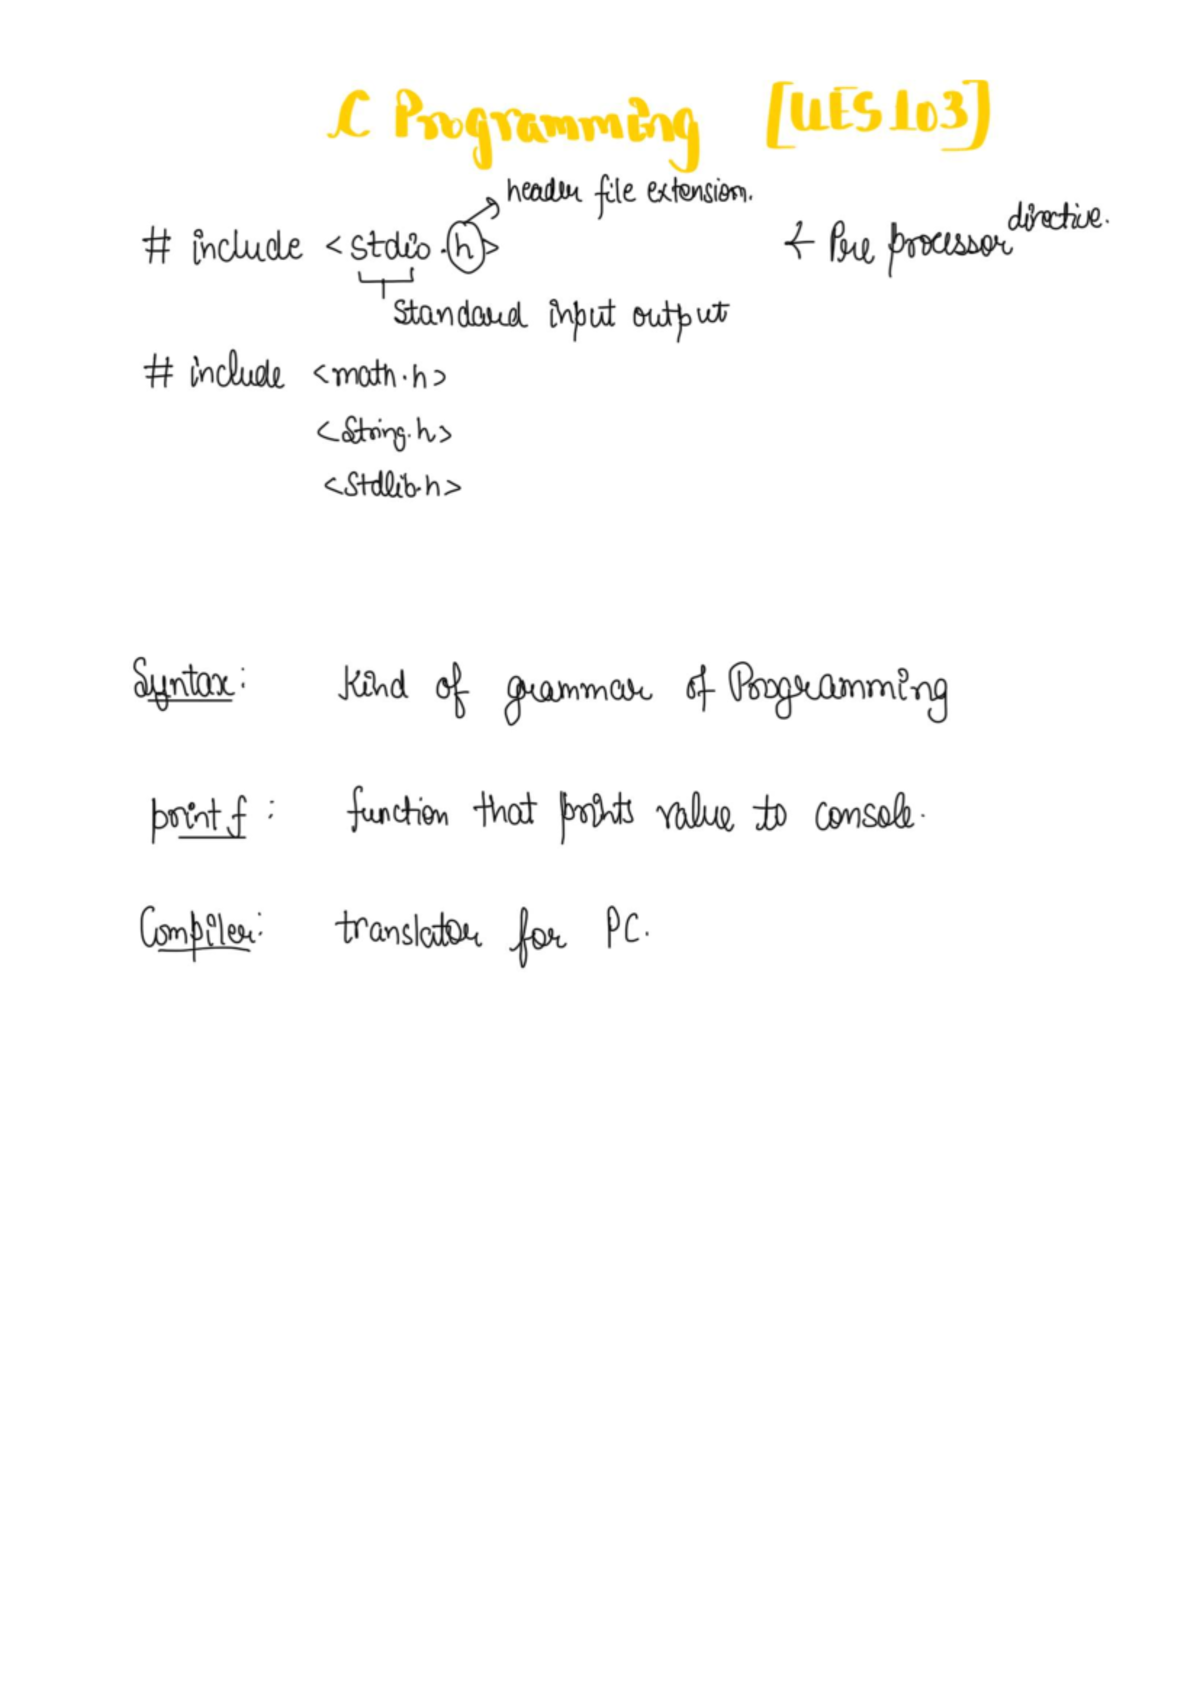 C Programming [UES103]
header file extension.
# include <stdio.h> ← Pre processor directive.
Standard input output
# include <math.h>
<String.h>
<Stdlib.h>
Syntax: Kind of grammar of Programming
printf : function that prints value to console.
Compiler: translator for PC.